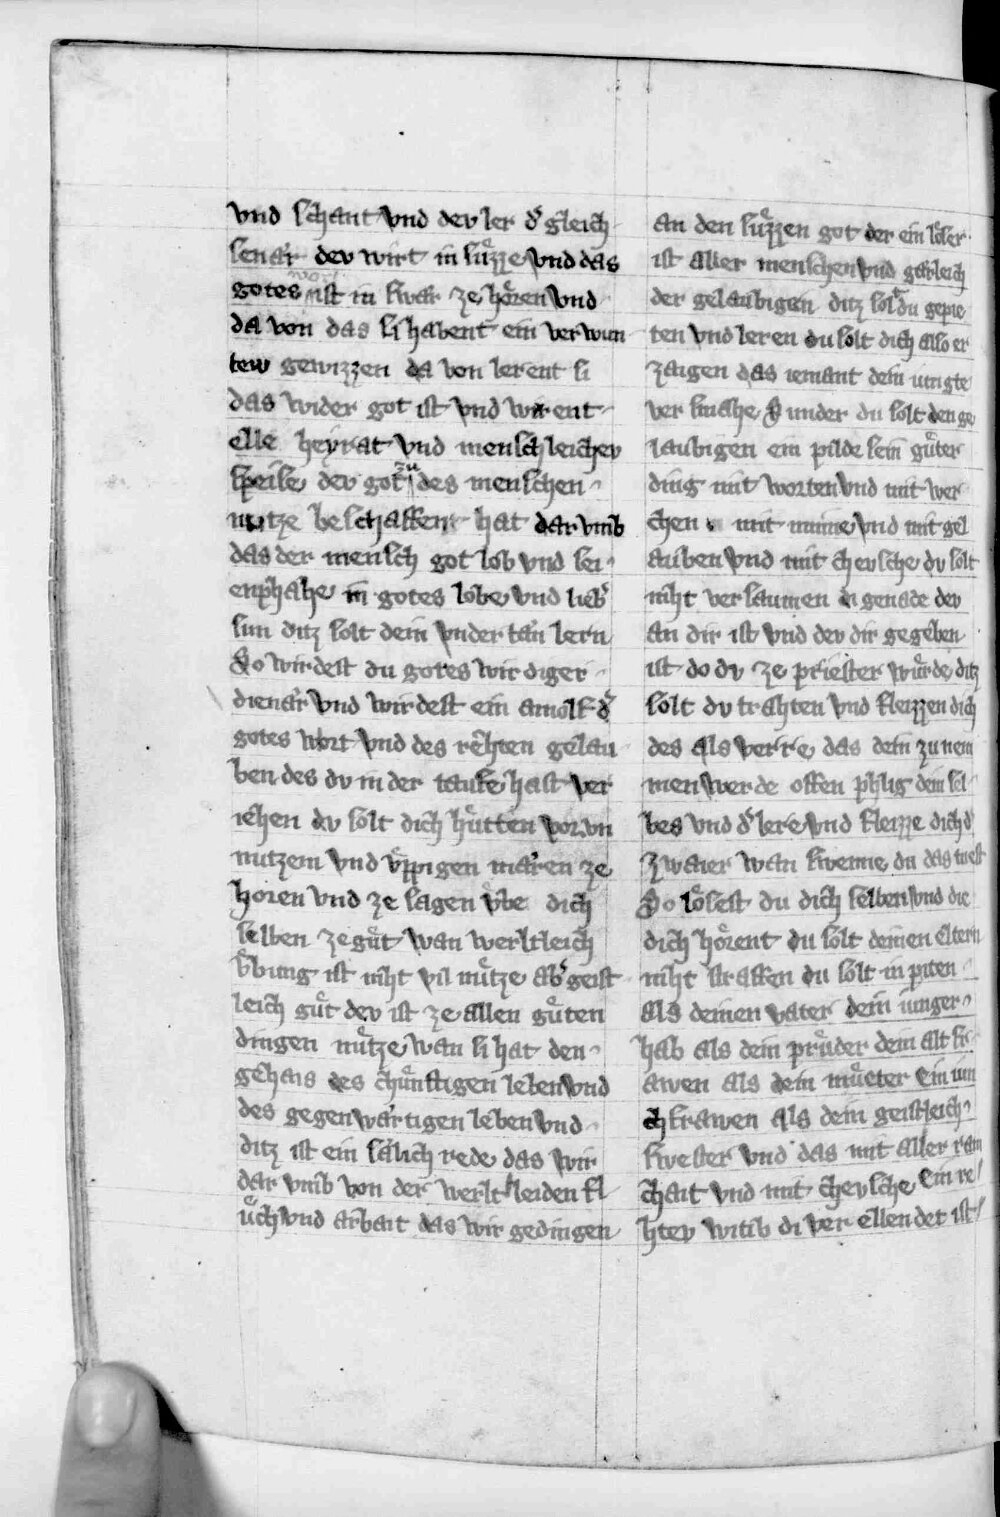 vnd schant vnd dev ler dˢ gleich
senar dev wirt in suͤzze vnd das
gotes wort ist in swar ze hoͤren vnd
da von das si habent ein verwun
tew gewizzen da von lerent si
das wider got ist vnd werent
elle heyrat vnd menschleicher
speise der got zu des menschen
nutze beschaffen hat dar vmb
das der mensch got lob vnd sei
enphahe in gotes lobe vnd liebˢ
sun ditz solt dein vnder tan lern
So wirdest du gotes wirdiger
dienar vnd wirdest ein amolf dˢ
gotes wort vnd des rehten gelau
ben des dv in der taufe hast ver
iehen dv solt dich huͤtten vor vn
nutzem vnd vͤppigen maren ze
horen vnd ze sagen vͤbe dich
selben ze guͤt wan werltleich
vͤbung ist niht vil nuͤtze abˢ geist
leich guͤt dev ist ze allen guͤten
dingen nuͤtze wan si hat den
gehais des chuͤnftigen leben vnd
des gegenwartigen leben vnd
ditz ist ein salich rede das wir
dar vmb von der werlt leiden fl
uͤch vnd arbait das wir gedingen
an den suͤzzen got der ein loser
ist aller menschen vnd garleich
der gelaubigen ditz solt du gepie
ten vnd leren du solt dich also er
zaigen das iemant dein iungte
ver smahe Sunder du solt den ge
laubigen ein pilde sein guͤter
ding mit worten vnd mit wer
chen mit minne vnd mit gel
auben vnd mit chevsche dv solt
niht versaumen di genade dev
an dir ist vnd dev dir gegeben
ist do dv ze priester wuͤrde ditz
solt dv trahten vnd fleizzen dich
des als verre das dein zu nem
men werde offen phlig dein sel
bes vnd dˢ lere vnd fleizze dich dˢ
zwaier wan swenne du das tuest
So loͤsest du dich selben vnd die
dich hoͤrent du solt deinen eltern
niht straffen du solt in piten
als deinen vater dein iunger
hab als dein pruͤder dein alt fr
awen als dein muͤter Ein iun
ch frawen als dein geistleich
swester vnd das mit aller rain
chait vnd mit chevsche Ein re
htev witib di ver ellendet ist